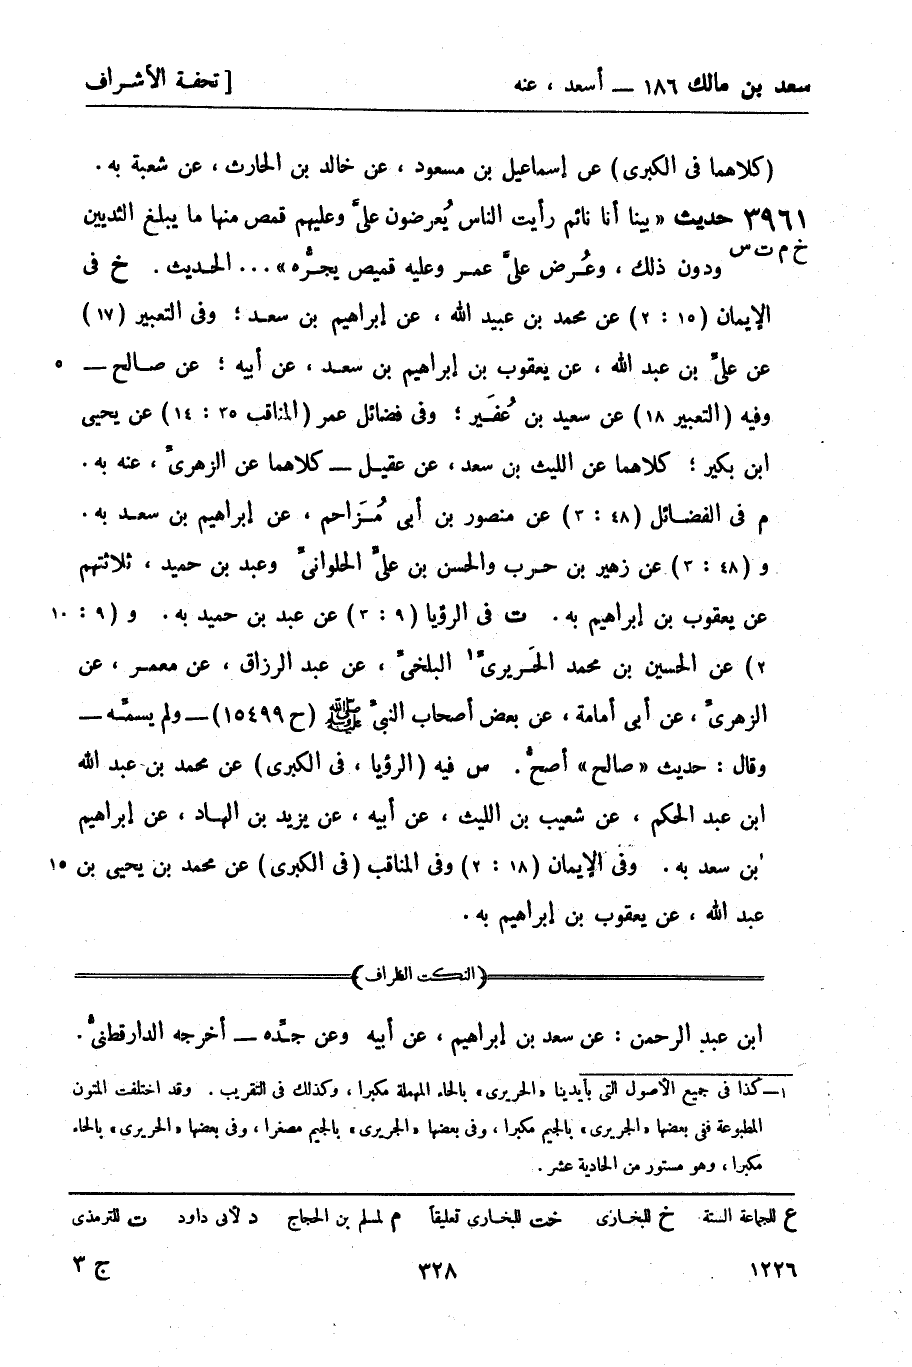 سعد بن مالك ١٨٦ ــ أسعد ، عنه [ تحفة الأشراف
(كلاهما فى الكبرى) عن إسماعيل بن مسعود ، عن خالد بن الحارث ، عن شعبة به .
٣٩٦١ حديث « بينا أنا نائم رأيت الناس يُعرضون علىَّ وعليهم قمص منها ما يبلغ الثديين
خ م ت س ودون ذلك ، وعُرض علىَّ عمر وعليه قميص يجرُّه » ... الحديث . خ فى
الإيمان (١٥ : ٢) عن محمد بن عبيد الله ، عن إبراهيم بن سعد ؛ وفى التعبير (١٧)
عن علىِّ بن عبد الله ، عن يعقوب بن إبراهيم بن سعد ، عن أبيه ؛ عن صالح ــ ٥
وفيه (التعبير ١٨) عن سعيد بن عُفَير ؛ وفى فضائل عمر (المناقب ٣٥ : ١٤) عن يحيى
ابن بكير ؛ كلاهما عن الليث بن سعد ، عن عقيل ــ كلاهما عن الزهرىِّ ، عنه به .
م فى الفضائل (٤٨ : ٣) عن منصور بن أبى مُزَاحم ، عن إبراهيم بن سعد به .
و (٤٨ : ٣) عن زهير بن حرب والحسن بن علىِّ الحلوانىِّ وعبد بن حميد ، ثلاثتهم
عن يعقوب بن إبراهيم به . ت فى الرؤيا (٩ : ٣) عن عبد بن حميد به . و (٩ : ١٠
٢) عن الحسين بن محمد الحَريرىِّ١ البلخىِّ ، عن عبد الرزاق ، عن معمر ، عن
الزهرىِّ ، عن أبى أمامة ، عن بعض أصحاب النبىِّ ﷺ (ح ١٥٤٩٩) ــ ولم يسمِّه ــ
وقال : حديث « صالح » أصحُّ . س فيه (الرؤيا ، فى الكبرى) عن محمد بن عبد الله
ابن عبد الحكم ، عن شعيب بن الليث ، عن أبيه ، عن يزيد بن الهاد ، عن إبراهيم
بن سعد به . وفى الإيمان (١٨ : ٢) وفى المناقب (فى الكبرى) عن محمد بن يحيى بن ١٥
عبد الله ، عن يعقوب بن إبراهيم به .
(النكت الظراف)
ابن عبد الرحمن : عن سعد بن إبراهيم ، عن أبيه وعن جدِّه ــ أخرجه الدارقطنىُّ .
١ــ كذا فى جميع الأصول التى بأيدينا «الحريرى» بالحاء المهملة مكبرا ، وكذلك فى التقريب . وقد اختلفت المتون
المطبوعة ففى بعضها «الجريرى» بالجيم مكبرا ، وفى بعضها «الجريرى» بالجيم مصغرا ، وفى بعضها «الحريرى» بالحاء
مكبرا ، وهو مستور من الحادية عشر .
ع للجماعة الستة خ للبخارى خت للبخارى تعليقاً م لمسلم بن الحجاج د لأبى داود ت للترمذى
١٢٢٦ ٣٢٨ ج ٣